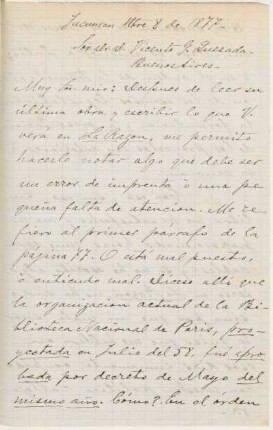 Tucuman Nbre 8 de 1877.
Sor. dr. d. Vicente G. Quesada.
Buenos Aires.
Muy Sr. mio: Despues de leer su
última obra y escribir lo que V.
verá en La Razon, me permito
hacerle notar algo que debe ser
un error de imprenta ó una pe
queña falta de atencion. Me re
fiero al primer párrafo de la
página 77. O está mal puesto,
ó entiendo mal. Dícese allí que
la organizacion actual de la Bi-
blioteca Nacional de Paris, pro-
yectada en Julio del 58. fué apro
bada por decreto de Mayo del
mismo año. Cómo? En el orden